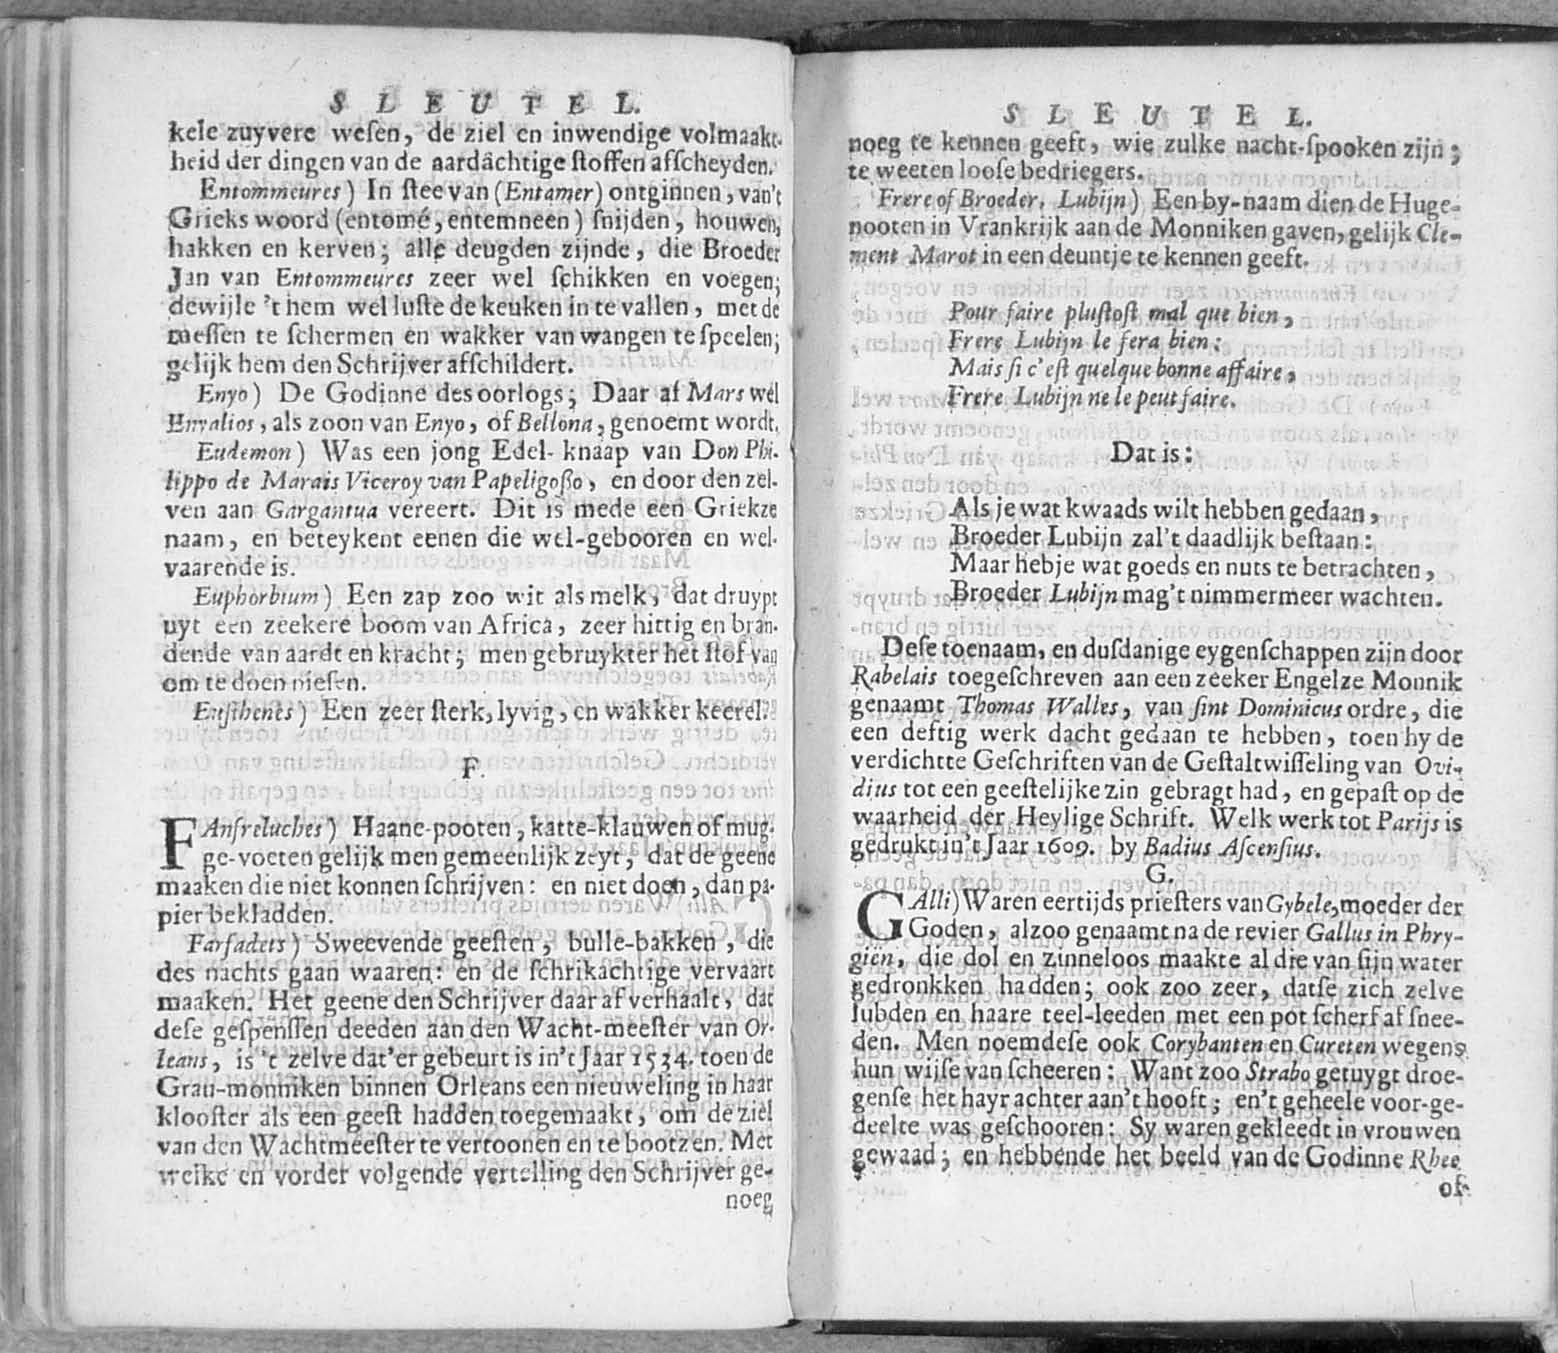 SLEUTEL.
kele zuyvere weſen, de ziel en inwendige volmaakt-
heid der dingen van de aardachtige ſtoffen afſcheyden.
Entommeures) In ſtee van (Entamer) ontginnen, van't
Grieks woord (entomé, entemneen) ſnijden, houwen,
hakken en kerven; alle deugden zijnde, die Broeder
Jan van Entommeures zeer wel ſchikken en voegen;
dewijle 't hem wel luſte de keuken in te vallen, met de
meſſen te ſchermen en wakker van wangen te ſpeelen;
gelijk hem den Schrijver afſchildert.
Enyo) De Godinne des oorlogs; Daar af Mars wel
Enyalios, als zoon van Enyo, of Bellona, genoemt wordt.
Eudemon) Was een jong Edel-knaap van Don Phi-
lippo de Marais Viceroy van Papeligoßo, en door den zel-
ven aan Gargantua vereert. Dit is mede een Griekze
naam, en beteykent eenen die wel-gebooren en wel-
vaarende is.
Euphorbium) Een zap zoo wit als melk, dat druypt
uyt een zeekere boom van Africa, zeer hittig en bran-
dende van aardt en kracht; men gebruykter het ſtof van
om te doen nieſen.
Euſthenes) Een zeer ſterk, lyvig, en wakker keerel.
F.
FAnfreluches) Haane-pooten, katte-klauwen of mug-
ge-voeten gelijk men gemeenlijk zeyt, dat de geene
maaken die niet konnen ſchrijven: en niet doen, dan pa-
pier bekladden.
Farfadets) Sweevende geeſten, bulle-bakken, die
des nachts gaan waaren: en de ſchrikachtige vervaart
maaken. Het geene den Schrijver daar af verhaalt, dat
deſe geſpenſſen deeden aan den Wacht-meeſter van Or-
leans, is 't zelve dat'er gebeurt is in't Jaar 1534. toen de
Grau-monniken binnen Orleans een nieuweling in haar
klooſter als een geeſt hadden toegemaakt, om de ziel
van den Wachtmeeſter te vertoonen en te bootzen. Met
welke en vorder volgende vertelling den Schrijver ge-
noeg
SLEUTEL.
noeg te kennen geeft, wie zulke nacht-ſpooken zijn;
te weeten looſe bedriegers.
Frere of Broeder, Lubijn) Een by-naam dien de Huge-
nooten in Vrankrijk aan de Monniken gaven, gelijk Cle-
ment Marot in een deuntje te kennen geeft.
Pour faire pluſtoſt mal que bien,
Frere Lubijn le fera bien:
Mais ſi c'eſt quelque bonne affaire,
Frere Lubijn ne le peut faire.
Dat is:
Als je wat kwaads wilt hebben gedaan,
Broeder Lubijn zal't daadlijk beſtaan:
Maar hebje wat goeds en nuts te betrachten,
Broeder Lubijn mag't nimmermeer wachten.
Deſe toenaam, en duſdanige eygenſchappen zijn door
Rabelais toegeſchreven aan een zeeker Engelze Monnik
genaamt Thomas Walles, van ſint Dominicus ordre, die
een deftig werk dacht gedaan te hebben, toen hy de
verdichtte Geſchriften van de Geſtaltwiſſeling van Ovi-
dius tot een geeſtelijke zin gebragt had, en gepaſt op de
waarheid der Heylige Schrift. Welk werk tot Parijs is
gedrukt in't Jaar 1609. by Badius Aſcenſius.
G.
GAlli) Waren eertijds prieſters van Gybele, moeder der
Goden, alzoo genaamt na de revier Gallus in Phry-
gien, die dol en zinneloos maakte al dre van ſijn water
gedronkken hadden; ook zoo zeer, datſe zich zelve
lubden en haare teel-leeden met een pot ſcherf af ſnee-
den. Men noemdeſe ook Corybanten en Cureten wegens
hun wijſe van ſcheeren: Want zoo Strabo getuygt droe-
genſe het hayr achter aan't hooft; en't geheele voor-ge-
deelte was geſchooren: Sy waren gekleedt in vrouwen
gewaad; en hebbende het beeld van de Godinne Rhee
of